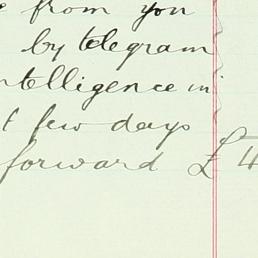 from you
by telegram
ntelligence in
few days
forward £4